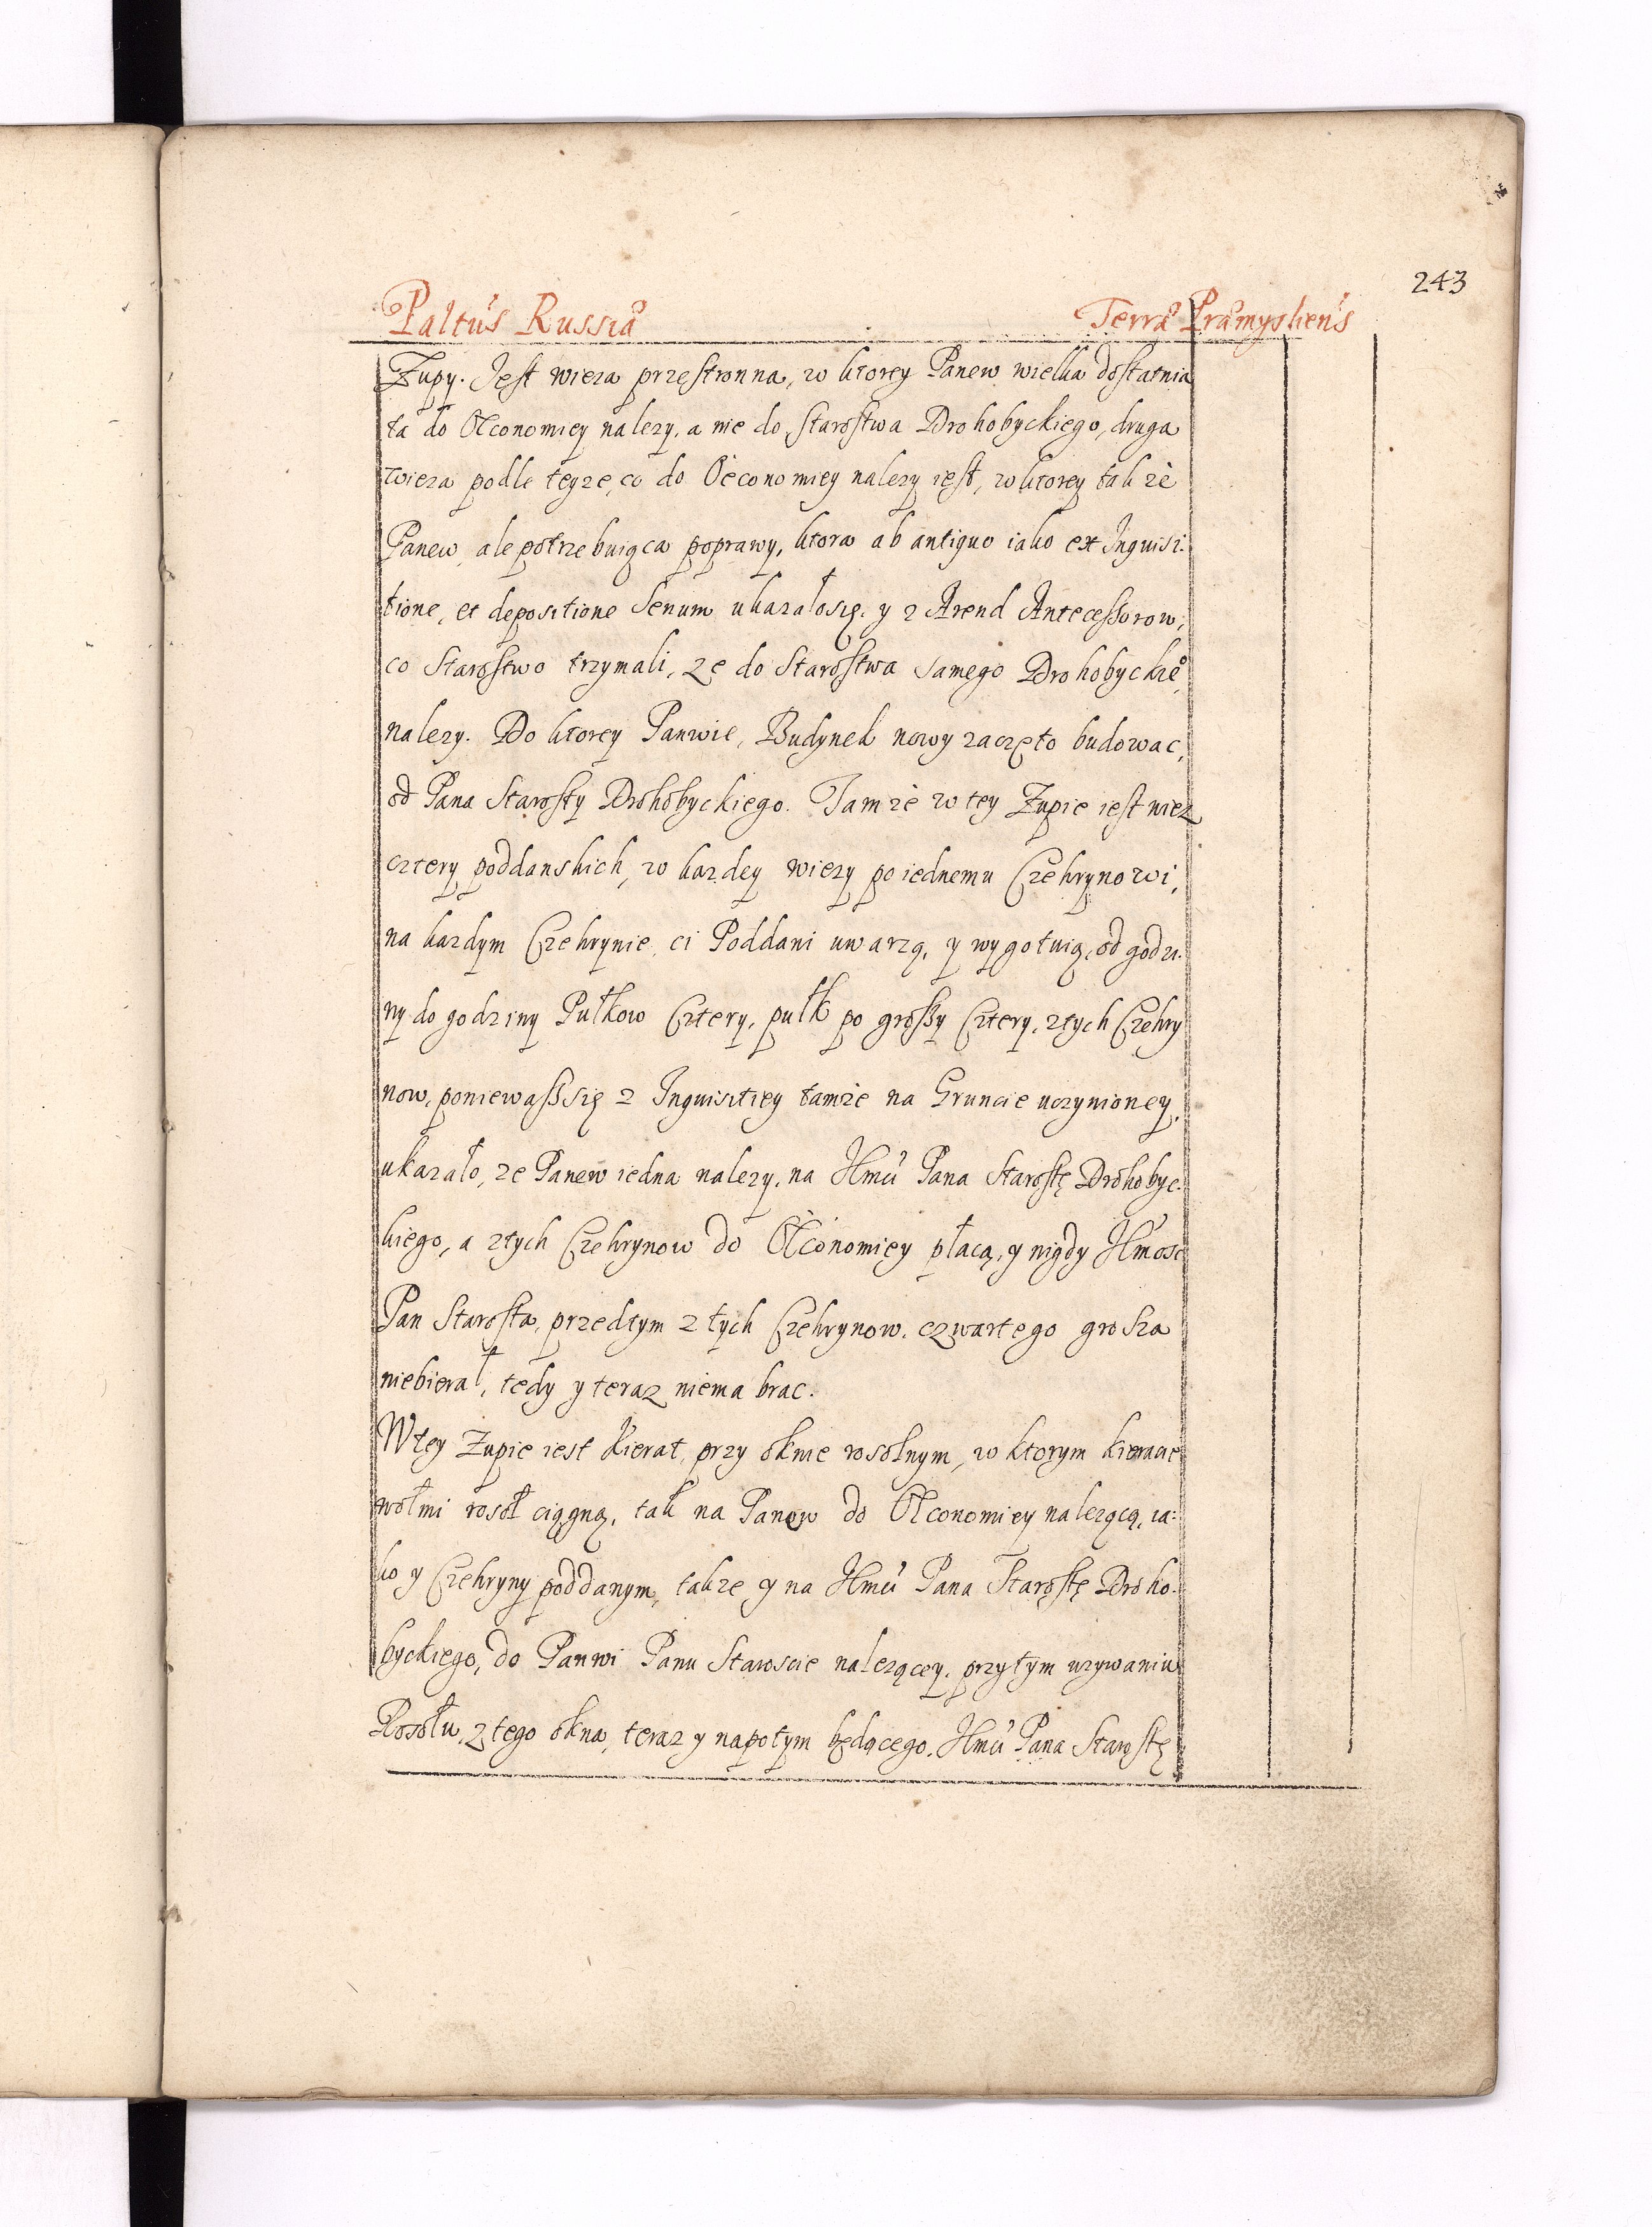 243
Paltus Russiæ Terræ Præmyslien's
Zupy. Jest wieza przestronna, w ktorey Panew wielka dostatnia
ta do Œconomiey nalezy, a nie do Starostwa Drohobyckiego, druga
wieza podle teyze, co do Oeconomiey nalezy iest, w ktorey takze
Panew, ale potrzebuiąca poprawy, ktora ab antiquo iako ex Inquisi-
tione, et depositione Senum ukazałosię. y z Arend Antecessorow,
co Starostwo trzymali, ze do Starostwa samego Drohobyckie°
nalezy. Do ktorey Panwie, Budynek nowy zaczęto budowac,
od Pana Starosty Drohobyckiego. Tamze w tey Zupie iest wiez
cztery poddanskich, w kazdey wiezy po iednemu Czehrynowi,
na kazdym Czehrynie, ci Poddani uwarzą, y wygotuią, od godzi-
ny do godziny Pułkow Cztery, pułk po groszy Cztery, z tych Czehry
now, poniewaß się z Inquisitiey tamze na Gruncie uczynioney,
ukazało, ze Panew iedna nalezy, na JEmći Pana Starostę Drohobyc-
kiego, a z tych Czehrynow do Œconomiey płacą, y nigdy JEmosc
Pan Starosta, przedtym z tych Czehrynow, czwartego grosza
niebierał, tedy y teraz niema brac.
W tey Zupie iest Kierat, przy oknie rosolnym, w ktorym kieracie
wołmi rosoł ciągną, tak na Panew do Œconomiey nalezącą, ia-
ko y Czehryny poddanym, takze y na JEmći Pana Starostę Droho-
byckiego, do Panwi Panu Staroscie nalezącey, przytym uzywaniu
Rosołu, z tego okna, teraz y napotym będącego, JEmći Pana Starostę